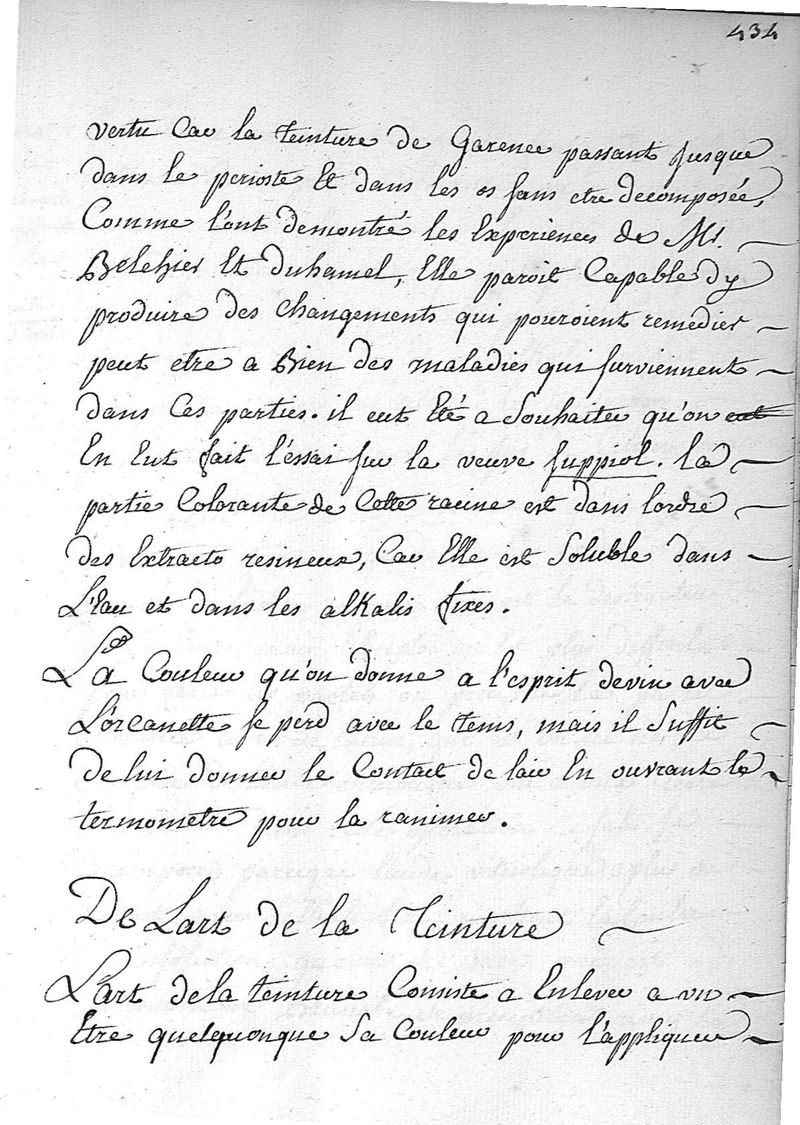 434
vertu Car la teinture de Garence passant jusque
dans le perioste Et dans les os sans etre decomposée,
Comme l'ont demontré les Experiences de Mr.
Belchier Et duhamel, Elle paroit Capable dy
produire des changements qui pouroient remedier
peut etre a Bien des maladies qui surviennent
dans Ces parties. il eut Eté a Souhaiter qu'on eut
En Eut fait l'éssai sur la veuve suppiol. la
partie Colorante de Cette racine est dans lordre
des Extracto resineux, Car Elle est Soluble dans
L'Eau et dans les alkalis fixes.
La Couleur qu'on donne a l'esprit devin avec
L'orcanette se pérd avec le tems, mais il Suffit
de lui donner le Contact de lair En ouvrant le
termometre pour la ranimer.
De Lart de la Teinture
L'art dela teinture Consiste a Enlever a un
Etre quelquonque Sa Couleur pour l'appliquer